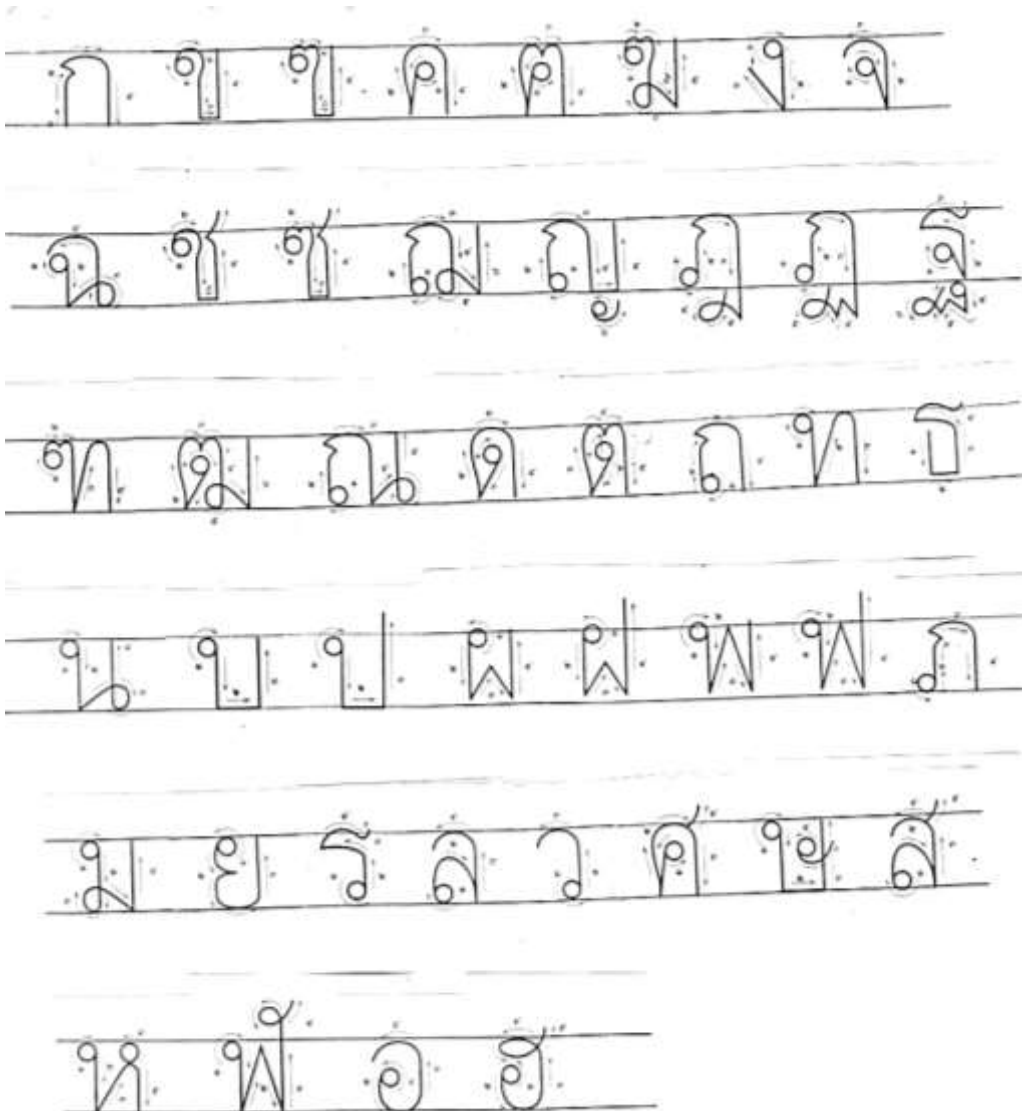 ก ข ฃ ค ฅ ฆ ง จ
ฉ ช ซ ฌ ญ ฎ ฏ ฐ
ฑ ฒ ณ ด ต ถ ท ธ
น บ ป ผ ฝ พ ฟ ภ
ม ย ร ล ว ศ ษ ส
ห ฬ อ ฮ